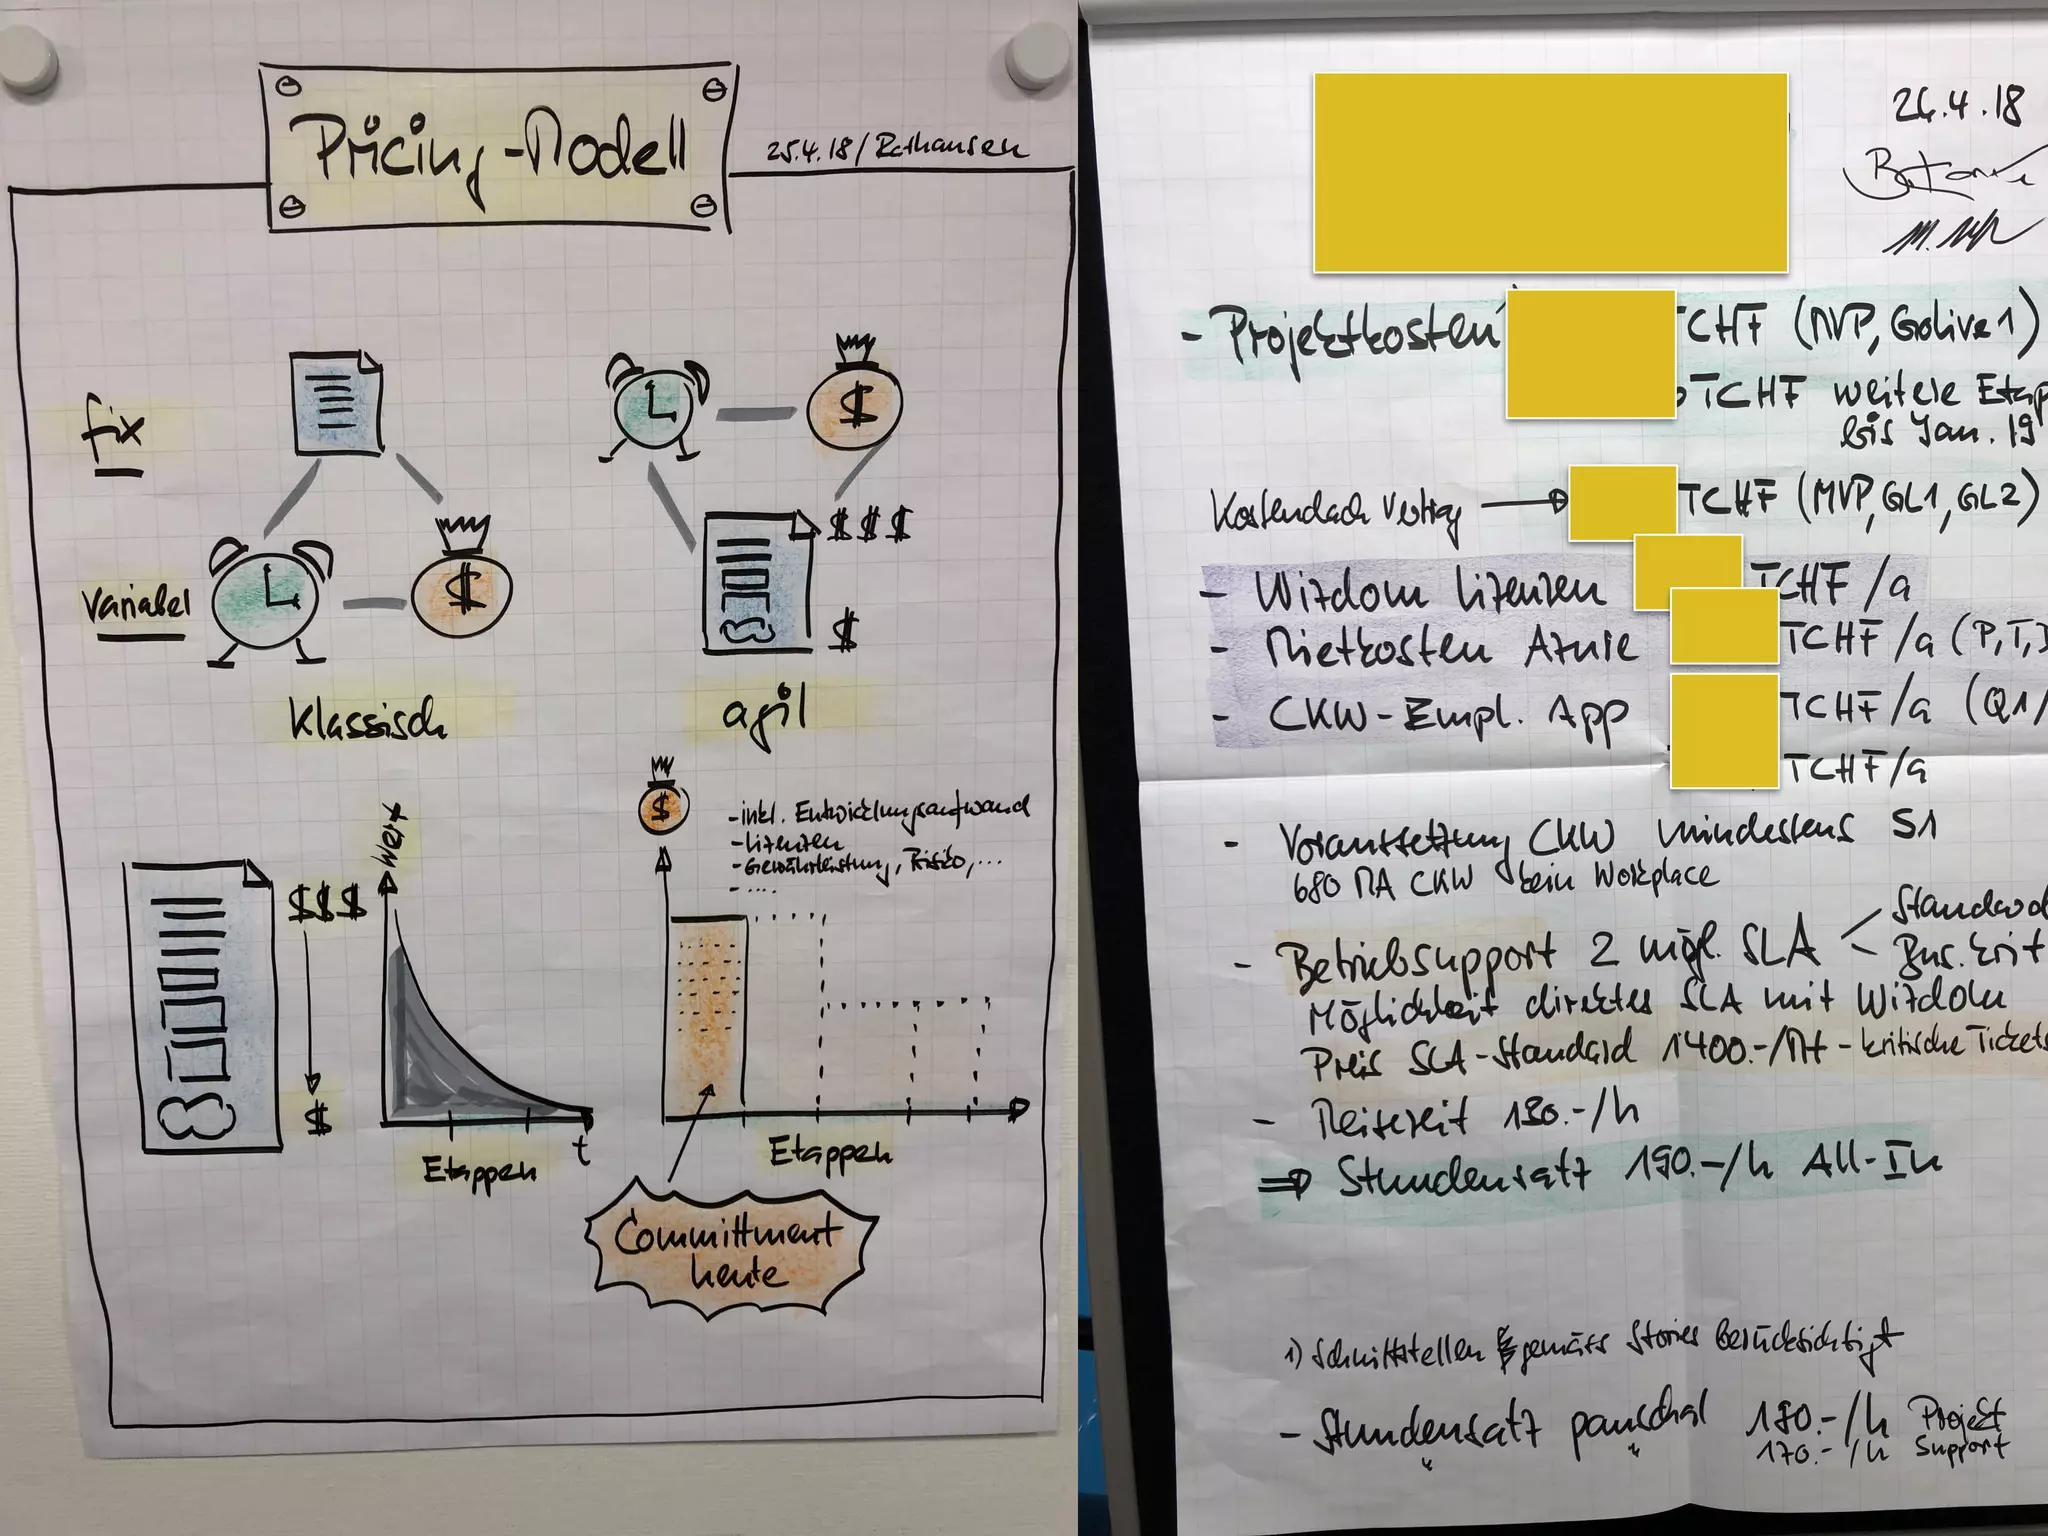 Pricing-Modell
25.4.18/Rathausen
fix
$
$
$$$
variabel
$
$
klassisch
agil
$
- inkl. Entwicklungsaufwand
- Lizenzen
- Gewährleistung, Risiko, ...
- ....
Wert
$$$
$
t
Etappen
Etappen
Committment
heute
26.4.18
- Projektkosten TCHF (MVP, Golive1)
TCHF weitere Etap
bis Jan. 19
Kostendach Vertrag TCHF (MVP, GL1, GL2)
- Wizdom Lizenzen TCHF/a
- Mietkosten Azure TCHF/a (P,T,
- CKW-Empl. App TCHF/a (Q1/
TCHF/a
- Voraussetzung CKW mindestens S1
680 MA CKW beim Workplace
- Betriebsupport 2 mögl. SLA Standard
Bus.krit
Möglichkeit direktes SLA mit Wizdom
Preis SLA-Standard 1400.-/Mt - kritische Tickets
- Reisezeit 130.-/h
⇒ Stundensatz 190.-/h All-In
1) Schnittstellen gemäss Stories berücksichtigt
- Stundensatz pauschal 180.-/h Projekt
" " 170.-/h Support